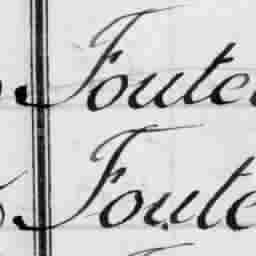 Foute
Foute